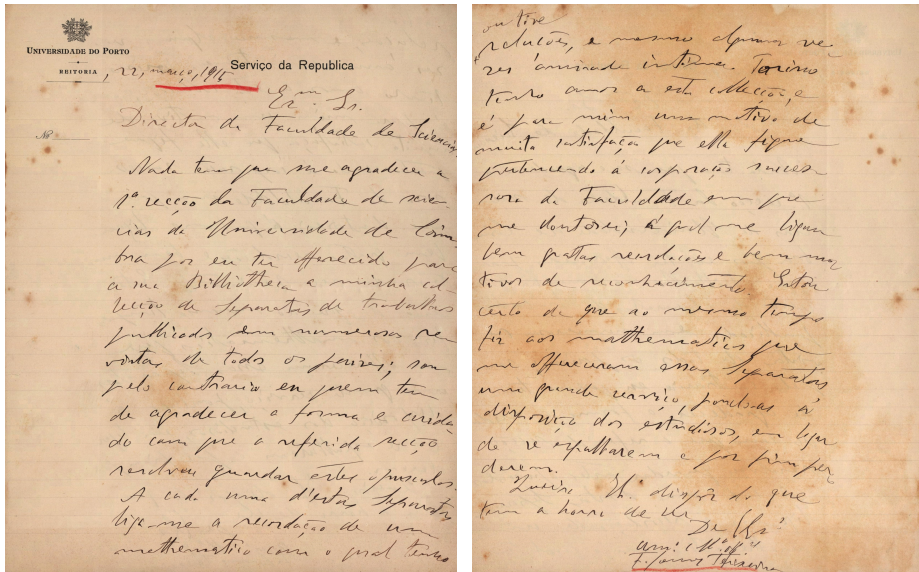 UNIVERSIDADE DO PORTO
REITORIA
Serviço da Republica
, 22, março, 1915
Ex.mo Sr.
Director da Faculdade de Sciencias
Nº
Nada tem que me agradecer a
1ª secção da Faculdade de scien-
cias da Universidade de Coim-
bra por eu ter offerecido para
a sua Bibliotheca a minha col-
lecção de Separatas de trabalhos
publicados em numerosas re-
vistas de todos os paizes; sou
pelo contrario eu quem tem
de agradecer a forma e cuida-
do com que a referida secção
resolveu guardar estes opusculos.
A cada uma d'estas Separatas
liga-me a recordação de um
mathematico com o qual tenho
ou tive
relações, e mesmo algumas ve-
zes amizade intima. Por isso
tenho amor a esta collecção, e
é para mim um motivo de
muita satisfação que ella fique
pertencendo á corporação succes-
sora da Faculdade em que
me doutorei; á qual me ligam
bem gratas recordações e bem mo-
tivos de reconhecimento. Estou
certo de que ao mesmo tempo
fiz aos mathematicos que
me offereceram essas Separatas
um grande serviço, pondo-as á
disposição dos estudiosos, em lugar
de se espalharem e por fim per-
derem.
Queira V. Ex.ª dispôr do que
tem a honra de ser
De V. Ex.ª
F. Gomes Teixeira